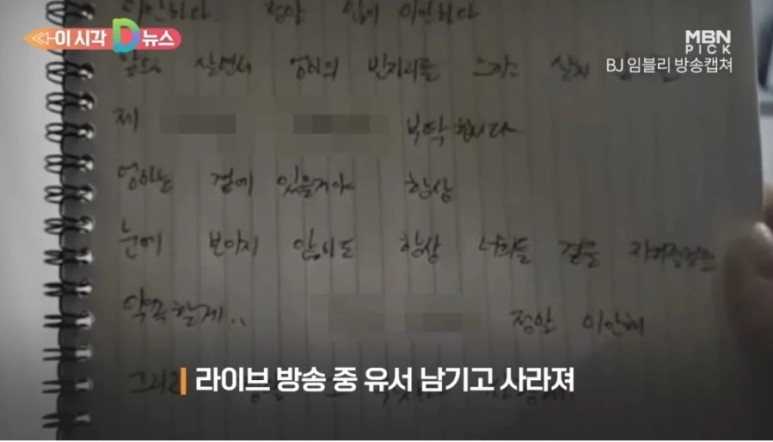 이 시각 D 뉴스
MBN
PICK
BJ 임블리 방송캡쳐
미안하다 정말 미안하다
살면서 엄마의 빈자리를
제 부탁합니다
엄마는 곁에 있을거야 항상
눈에 보이지 않아도 항상 너희들 곁을
약속할게.. 정말 미안해
라이브 방송 중 유서 남기고 사라져